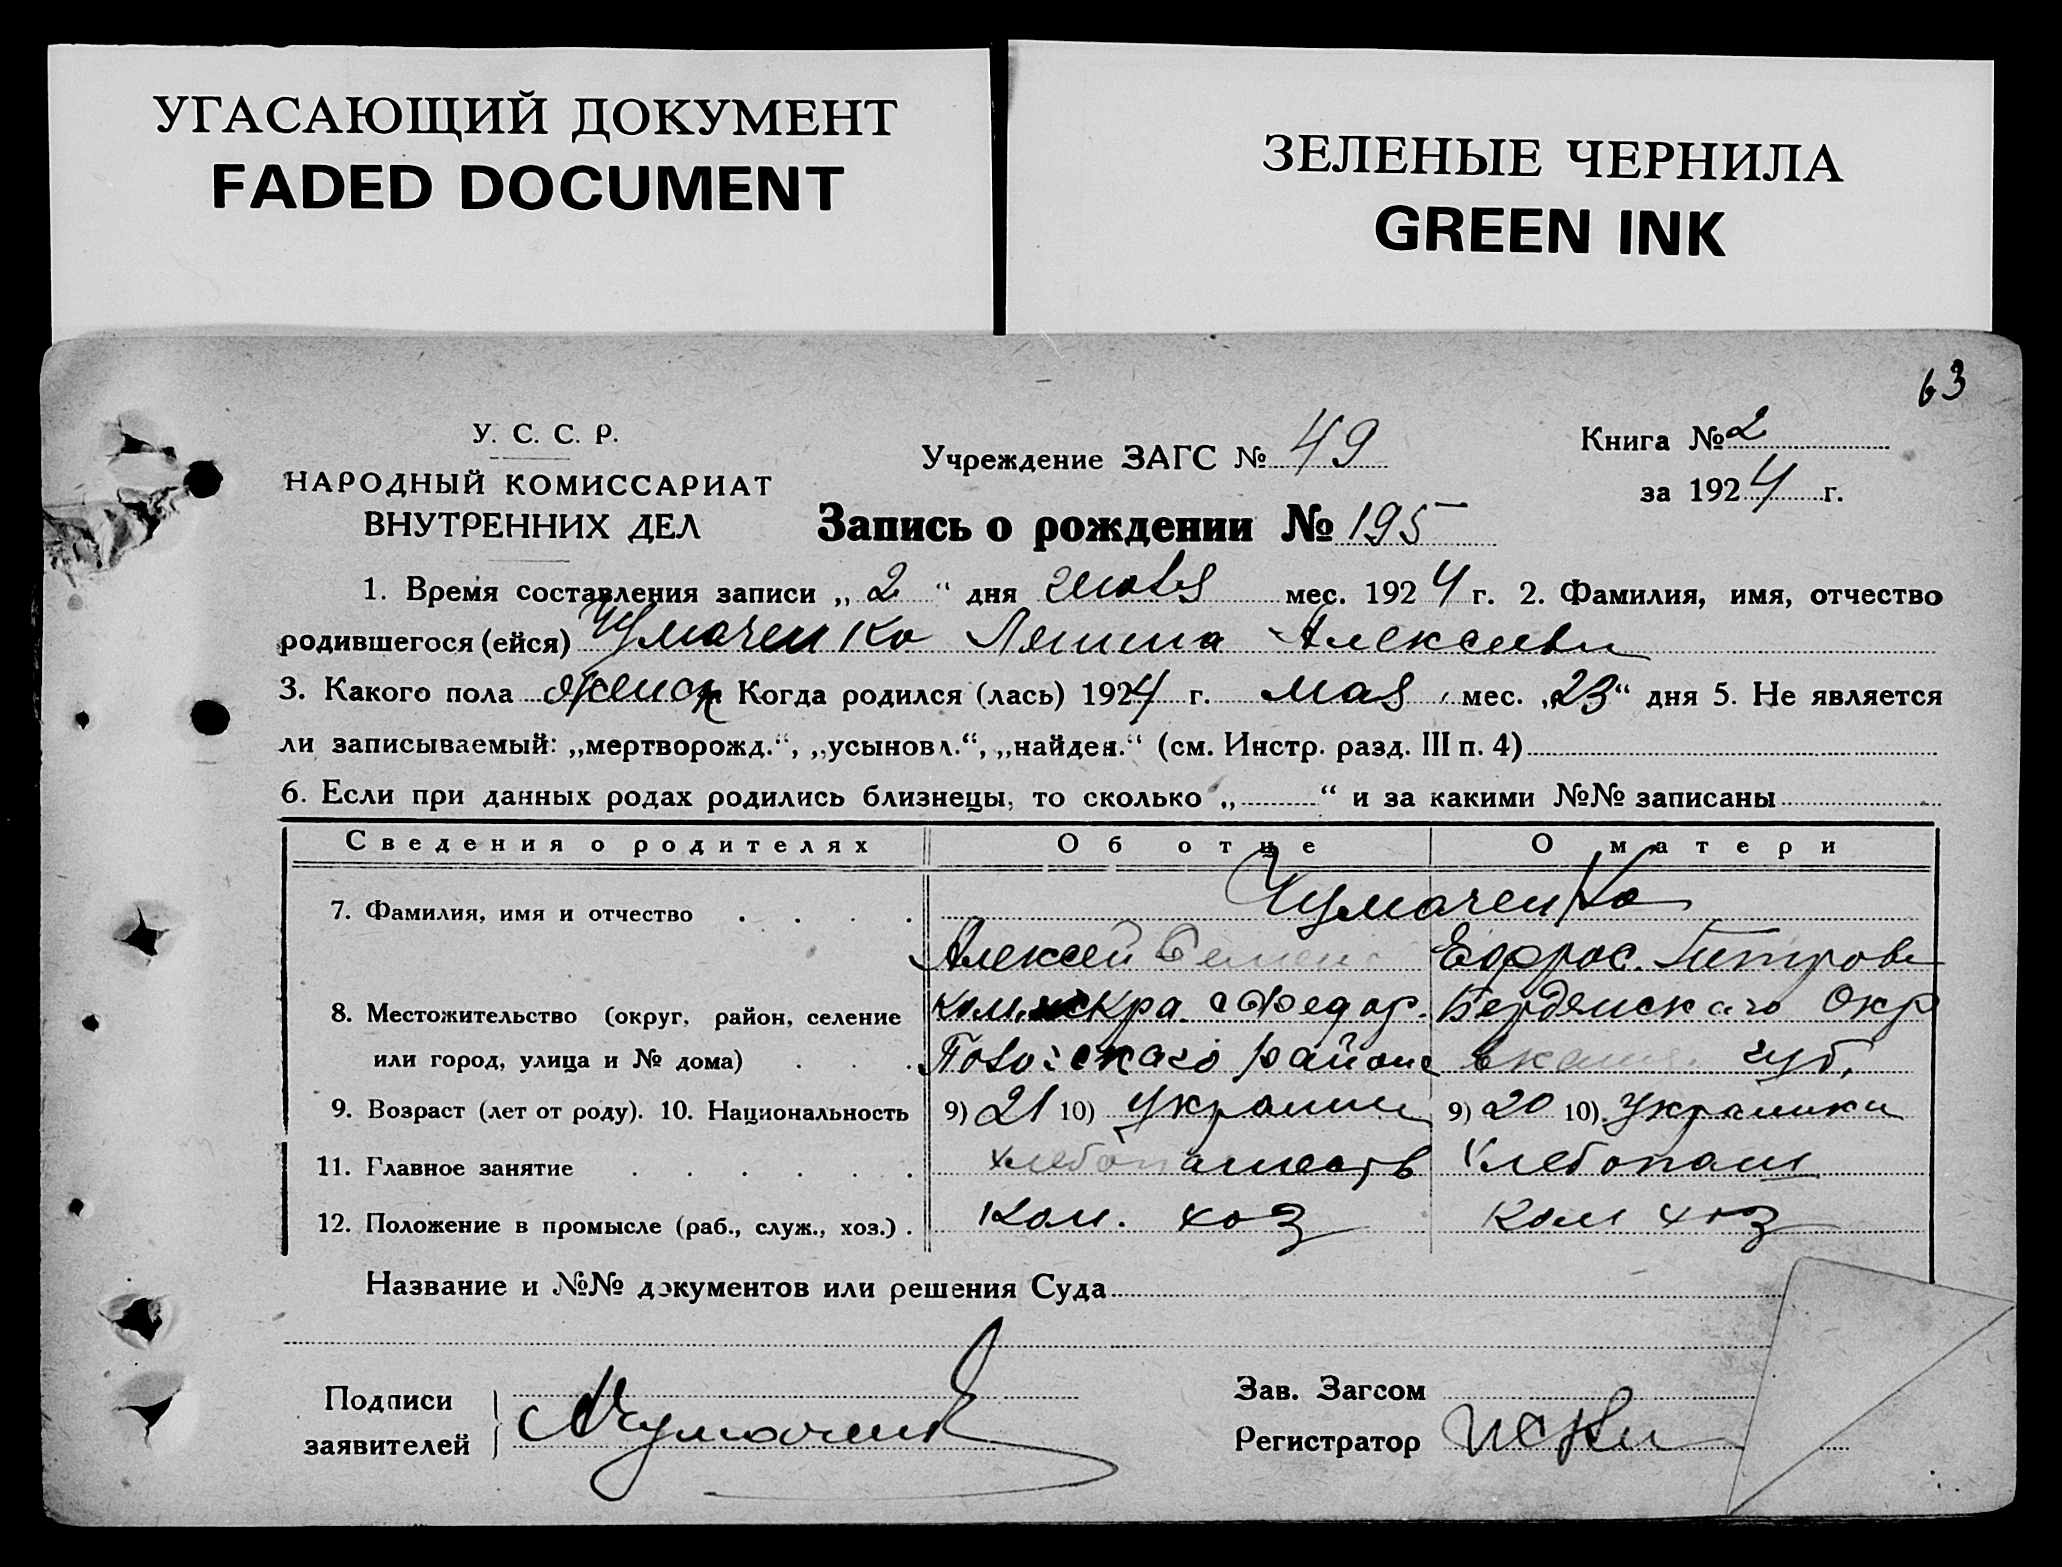 УГАСАЮЩИЙ ДОКУМЕНТ
FADED DOCUMENT
ЗЕЛЕНЫЕ ЧЕРНИЛА
GREEN INK
63
У. С. С. Р.
НАРОДНЫЙ КОМИССАРИАТ
ВНУТРЕННИХ ДЕЛ
Учреждение ЗАГС № 49
Книга № 2
за 1924 г.
Запись о рождении № 195
1. Время составления записи „ 2 “ дня мес. 1924 г. 2. Фамилия, имя, отчество
родившегося (ейся) Чумаченко Ленина Алексеевн
3. Какого пола женск Когда родился (лась) 1924 г. мая мес. „23“ дня 5. Не является
ли записываемый: „мертворожд.“, „усыновл.“, „найден.“ (см. Инстр. разд. III п. 4)
6. Если при данных родах родились близнецы, то сколько „ “ и за какими №№ записаны
Сведения о родителях Об отце О матери
7. Фамилия, имя и отчество Чумаченко
Алексей Семен Ефрос. Петровн
8. Местожительство (округ, район, селение Ком. искра Федор. Бердянскаго Окр
или город, улица и № дома) района губ.
9. Возраст (лет от роду). 10. Национальность 9) 21 10) Украинец 9) 20 10) Украинка
11. Главное занятие хлебопашеств Хлебопаш
12. Положение в промысле (раб., служ., хоз.) Ком. хоз Ком хоз
Название и №№ документов или решения Суда
Подписи
заявителей АЧумаченк
Зав. Загсом
Регистратор